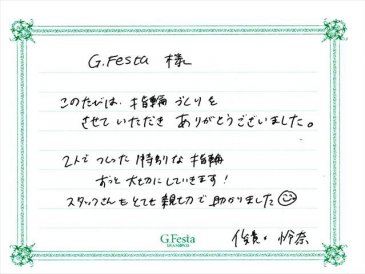 G.Festa 様
このたびは、指輪づくりを
させていただき ありがとうございました。
2人でつくった特別な指輪
ずっと大切にしていきます!
スタッフさんもとても親切で助かりました
G.Festa
DIAMOND
怜奈